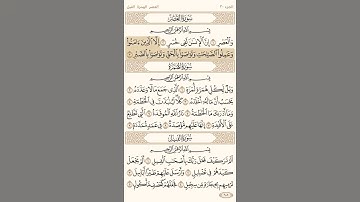 الجزء ٣٠ العصر الهمزة الفيل
سُورَةُ العَصْرِ
بِسْمِ اللَّهِ الرَّحْمَٰنِ الرَّحِيمِ
وَالْعَصْرِ ١ إِنَّ الْإِنسَٰنَ لَفِي خُسْرٍ ٢ إِلَّا الَّذِينَ ءَامَنُوا
وَعَمِلُوا الصَّٰلِحَٰتِ وَتَوَاصَوْا بِالْحَقِّ وَتَوَاصَوْا بِالصَّبْرِ ٣
سُورَةُ الهُمَزَةِ
بِسْمِ اللَّهِ الرَّحْمَٰنِ الرَّحِيمِ
وَيْلٌ لِّكُلِّ هُمَزَةٍ لُّمَزَةٍ ١ الَّذِي جَمَعَ مَالًا وَعَدَّدَهُ ٢
يَحْسَبُ أَنَّ مَالَهُ أَخْلَدَهُ ٣ كَلَّا لَيُنبَذَنَّ فِي الْحُطَمَةِ ٤
وَمَا أَدْرَىٰكَ مَا الْحُطَمَةُ ٥ نَارُ اللَّهِ الْمُوقَدَةُ ٦ الَّتِي تَطَّلِعُ
عَلَى الْأَفْـِٔدَةِ ٧ إِنَّهَا عَلَيْهِم مُّؤْصَدَةٌ ٨ فِي عَمَدٍ مُّمَدَّدَةٍ ٩
سُورَةُ الفِيلِ
بِسْمِ اللَّهِ الرَّحْمَٰنِ الرَّحِيمِ
أَلَمْ تَرَ كَيْفَ فَعَلَ رَبُّكَ بِأَصْحَٰبِ الْفِيلِ ١ أَلَمْ يَجْعَلْ
كَيْدَهُمْ فِي تَضْلِيلٍ ٢ وَأَرْسَلَ عَلَيْهِمْ طَيْرًا أَبَابِيلَ ٣
تَرْمِيهِم بِحِجَارَةٍ مِّن سِجِّيلٍ ٤ فَجَعَلَهُمْ كَعَصْفٍ مَّأْكُولٍ ٥